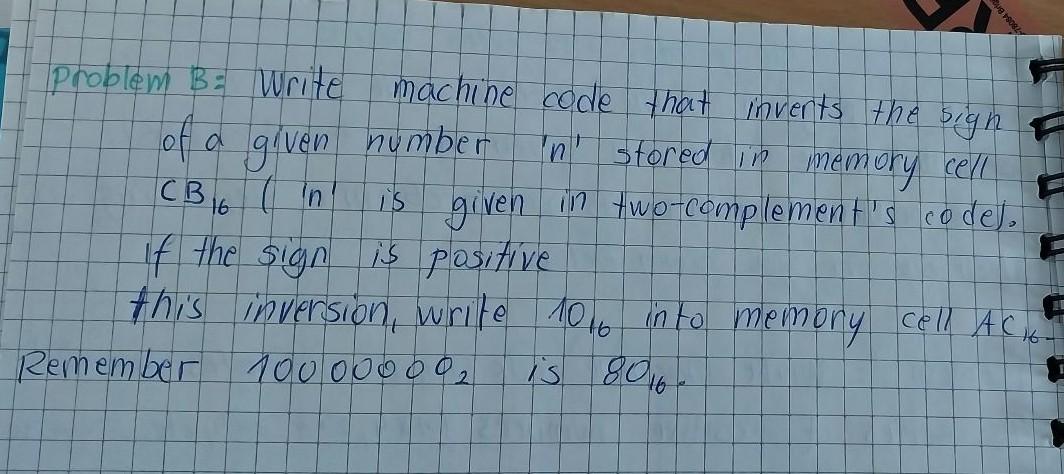 Problem B: Write machine code that inverts the sign
of a given number 'n' stored in memory cell
CB₁₆ ('n' is given in two-complement's code).
If the sign is positive
this inversion, write 10₁₆ into memory cell AC₁₆.
Remember 10000000₂ is 80₁₆.